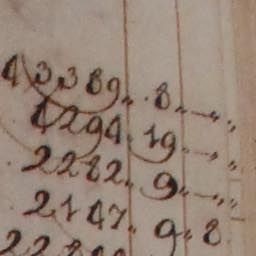 43389„ 8„ —„
4294„ 19„ —„
2282„ 9„ —„
2147„ 9„ 8